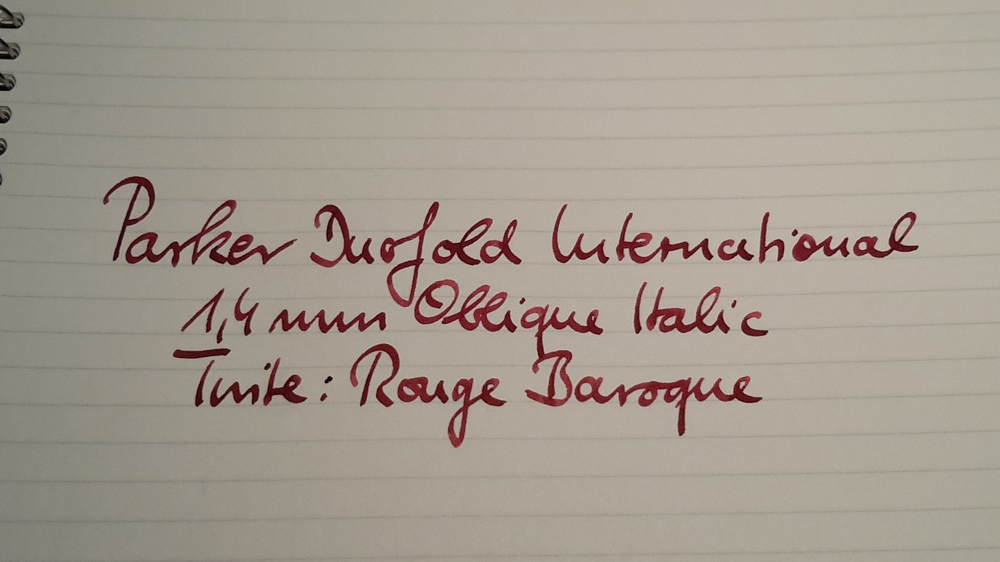 Parker Duofold International
1,4 mm Oblique Italic
Tinte: Rouge Baroque